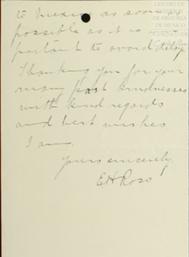 to Mexico as soon as
possible as it is
to avoid delay
Thanking you for your
many past kindnesses
with kind regards
and best wishes
I am,
Yours sincerely
E H Ross